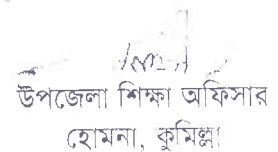 উপজেলা শিক্ষা অফিসার
হোমনা, কুমিল্লা